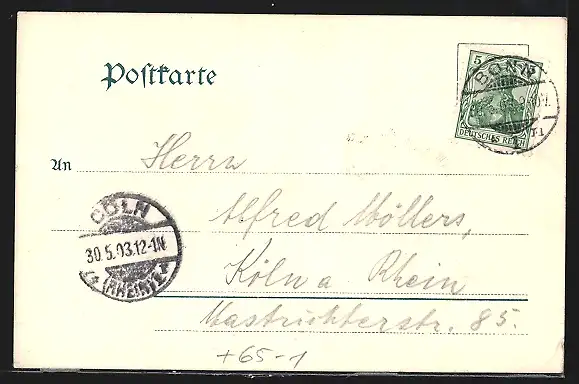 Postkarte
5
BONN
DEUTSCHES REICH
An Herrn
Alfred Möllers,
Köln a Rhein
Mastrichterstr. 85.
CÖLN
30.5.03.12-1N.
(RHEIN)
+65-1